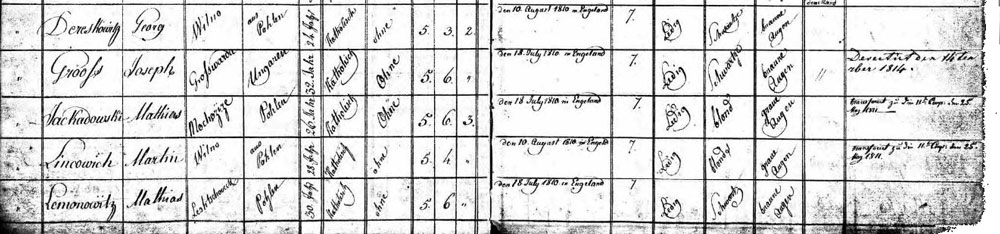 " Dereskowitz Georg Wilno aus Pohlen 24 Jahr Katholisch ohne 5. 3. 2. den 10. August 1810 in Engeland 7. Ledig Schwartze braune Augen
" Grooss Joseph Ungaren 32 Jahr Katholisch Ohne 5. 6. " den 18. July 1810. in Engeland 7. Ledig Schwartze braune Augen " Desertirt den
1814.
" Mathias Pohlen 26 Jahr Katholisch Ohne 5. 6. 3. den 18 July 1810 in Engeland 7. Ledig blond graue Augen transferirt zu die 11te Comp. den 25
May 1811.
" Lincowich Martin Wilno aus Pohlen Katholisch ohne 5. 4. " den 10. August 1810. in Engeland 7. Ledig blond graue Augen transferirt zu die 11te Comp. den 25
May 1811.
" Lemonowitz Mathias Pohlen 30 Jahr Katholisch ohne 5. 6. " den 18 July 1810 in Engeland 7. Ledig Schwartz braune Augen